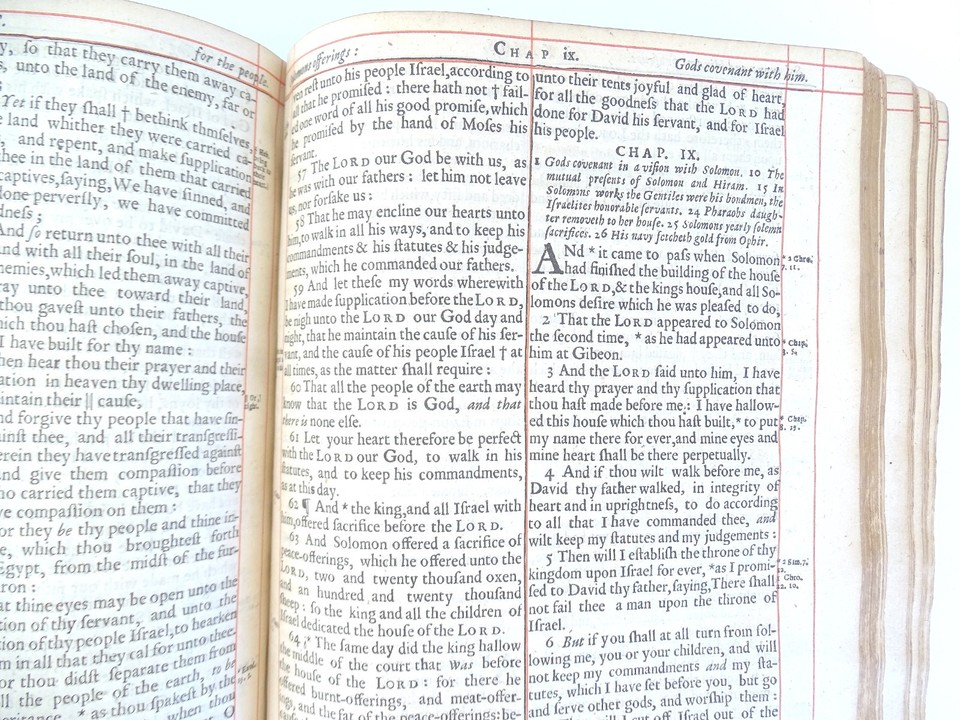 for the people.
y, so that they carry them away ca-
s, unto the land of the enemy, far or
Yet if they ſhall † bethink thmſelves,
e land whither they were carried ca-
, and repent, and make ſupplication
hee in the land of them that carried
captives, ſaying, We have ſinned, and
one perverſly, we have committed
dneſs;
And ſo return unto thee with all their
nd with all their ſoul, in the land of
nemies, which led them away captive,
ray unto thee toward their land,
thou gaveſt unto their fathers, the
hich thou haſt choſen, and the houſe
I have built for thy name:
hen hear thou their prayer and their
ation in heaven thy dwelling place,
intain their || cauſe,
nd forgive thy people that have ſin-
inſt thee, and all their tranſgreſſi-
erein they have tranſgreſſed againſt
and give them compaſſion before
ho carried them captive, that they
ve compaſſion on them:
or they be thy people and thine in-
e, which thou broughteſt forth
Egypt, from the midſt of the fur-
ron:
at thine eyes may be open unto the
tion of thy ſervant, and unto the
tion of thy people Iſrael, to hearken
m in all that they call for unto thee.
or thou didſt ſeparate them from
ll the people of the earth, to be
* as thou ſpakeſt by the
when thou
offerings:
CHAP ix.
Gods covenant with him.
reſt unto his people Iſrael, according to
all that he promiſed: there hath not † fail-
ed one word of all his good promiſe, which
he promiſed by the hand of Moſes his
ſervant.
57 The LORD our God be with us, as
he was with our fathers: let him not leave
us, nor forſake us:
58 That he may encline our hearts unto
him, to walk in all his ways, and to keep his
commandments & his ſtatutes & his judge-
ments, which he commanded our fathers.
59 And let theſe my words wherewith
I have made ſupplication before the LORD,
be nigh unto the LORD our God day and
night, that he maintain the cauſe of his ſer-
vant, and the cauſe of his people Iſrael † at
all times, as the matter ſhall require:
60 That all the people of the earth may
know that the LORD is God, and that
there is none elſe.
61 Let your heart therefore be perfect
with the LORD our God, to walk in his
ſtatutes, and to keep his commandments,
as at this day.
62 ¶ And * the king, and all Iſrael with
him, offered ſacrifice before the LORD.
63 And Solomon offered a ſacrifice of
peace-offerings, which he offered unto the
LORD, two and twenty thouſand oxen,
and an hundred and twenty thouſand
ſheep: ſo the king and all the children of
Iſrael dedicated the houſe of the LORD.
64 * The ſame day did the king hallow
the middle of the court that was before
the houſe of the LORD: for there he
offered burnt-offerings, and meat-offer-
ings, and the fat of the peace-offerings: be-
unto their tents joyful and glad of heart,
for all the goodneſs that the LORD had
done for David his ſervant, and for Iſrael
his people.
CHAP. IX.
1 Gods covenant in a viſion with Solomon. 10 The
mutual preſents of Solomon and Hiram. 15 In
Solomons works the Gentiles were his bondmen, the
Iſraelites honorable ſervants. 24 Pharaohs daugh-
ter removeth to her houſe. 25 Solomons yearly ſolemn
ſacrifices. 26 His navy fetcheth gold from Ophir.
ANd * it came to paſs when Solomon
had finiſhed the building of the houſe
of the LORD, & the kings houſe, and all So-
lomons deſire which he was pleaſed to do,
2 That the LORD appeared to Solomon
the ſecond time, * as he had appeared unto
him at Gibeon.
3 And the LORD ſaid unto him, I have
heard thy prayer and thy ſupplication that
thou haſt made before me: I have hallow-
ed this houſe which thou haſt built, * to put
my name there for ever, and mine eyes and
mine heart ſhall be there perpetually.
4 And if thou wilt walk before me, as
David thy father walked, in integrity of
heart and in uprightneſs, to do according
to all that I have commanded thee, and
wilt keep my ſtatutes and my judgements:
5 Then will I eſtabliſh the throne of thy
kingdom upon Iſrael for ever, * as I promi-
ſed to David thy father, ſaying, There ſhall
not fail thee a man upon the throne of
Iſrael.
6 But if you ſhall at all turn from fol-
lowing me, you or your children, and will
not keep my commandments and my ſta-
tutes, which I have ſet before you, but go
and ſerve other gods, and worſhip them:
will I cut off Iſrael out of the
* 2 Chro.
7. 11.
* Chap.
3. 5.
* Chap.
8. 29.
* 2 Sam. 7.
12.
1 Chro.
22. 10.